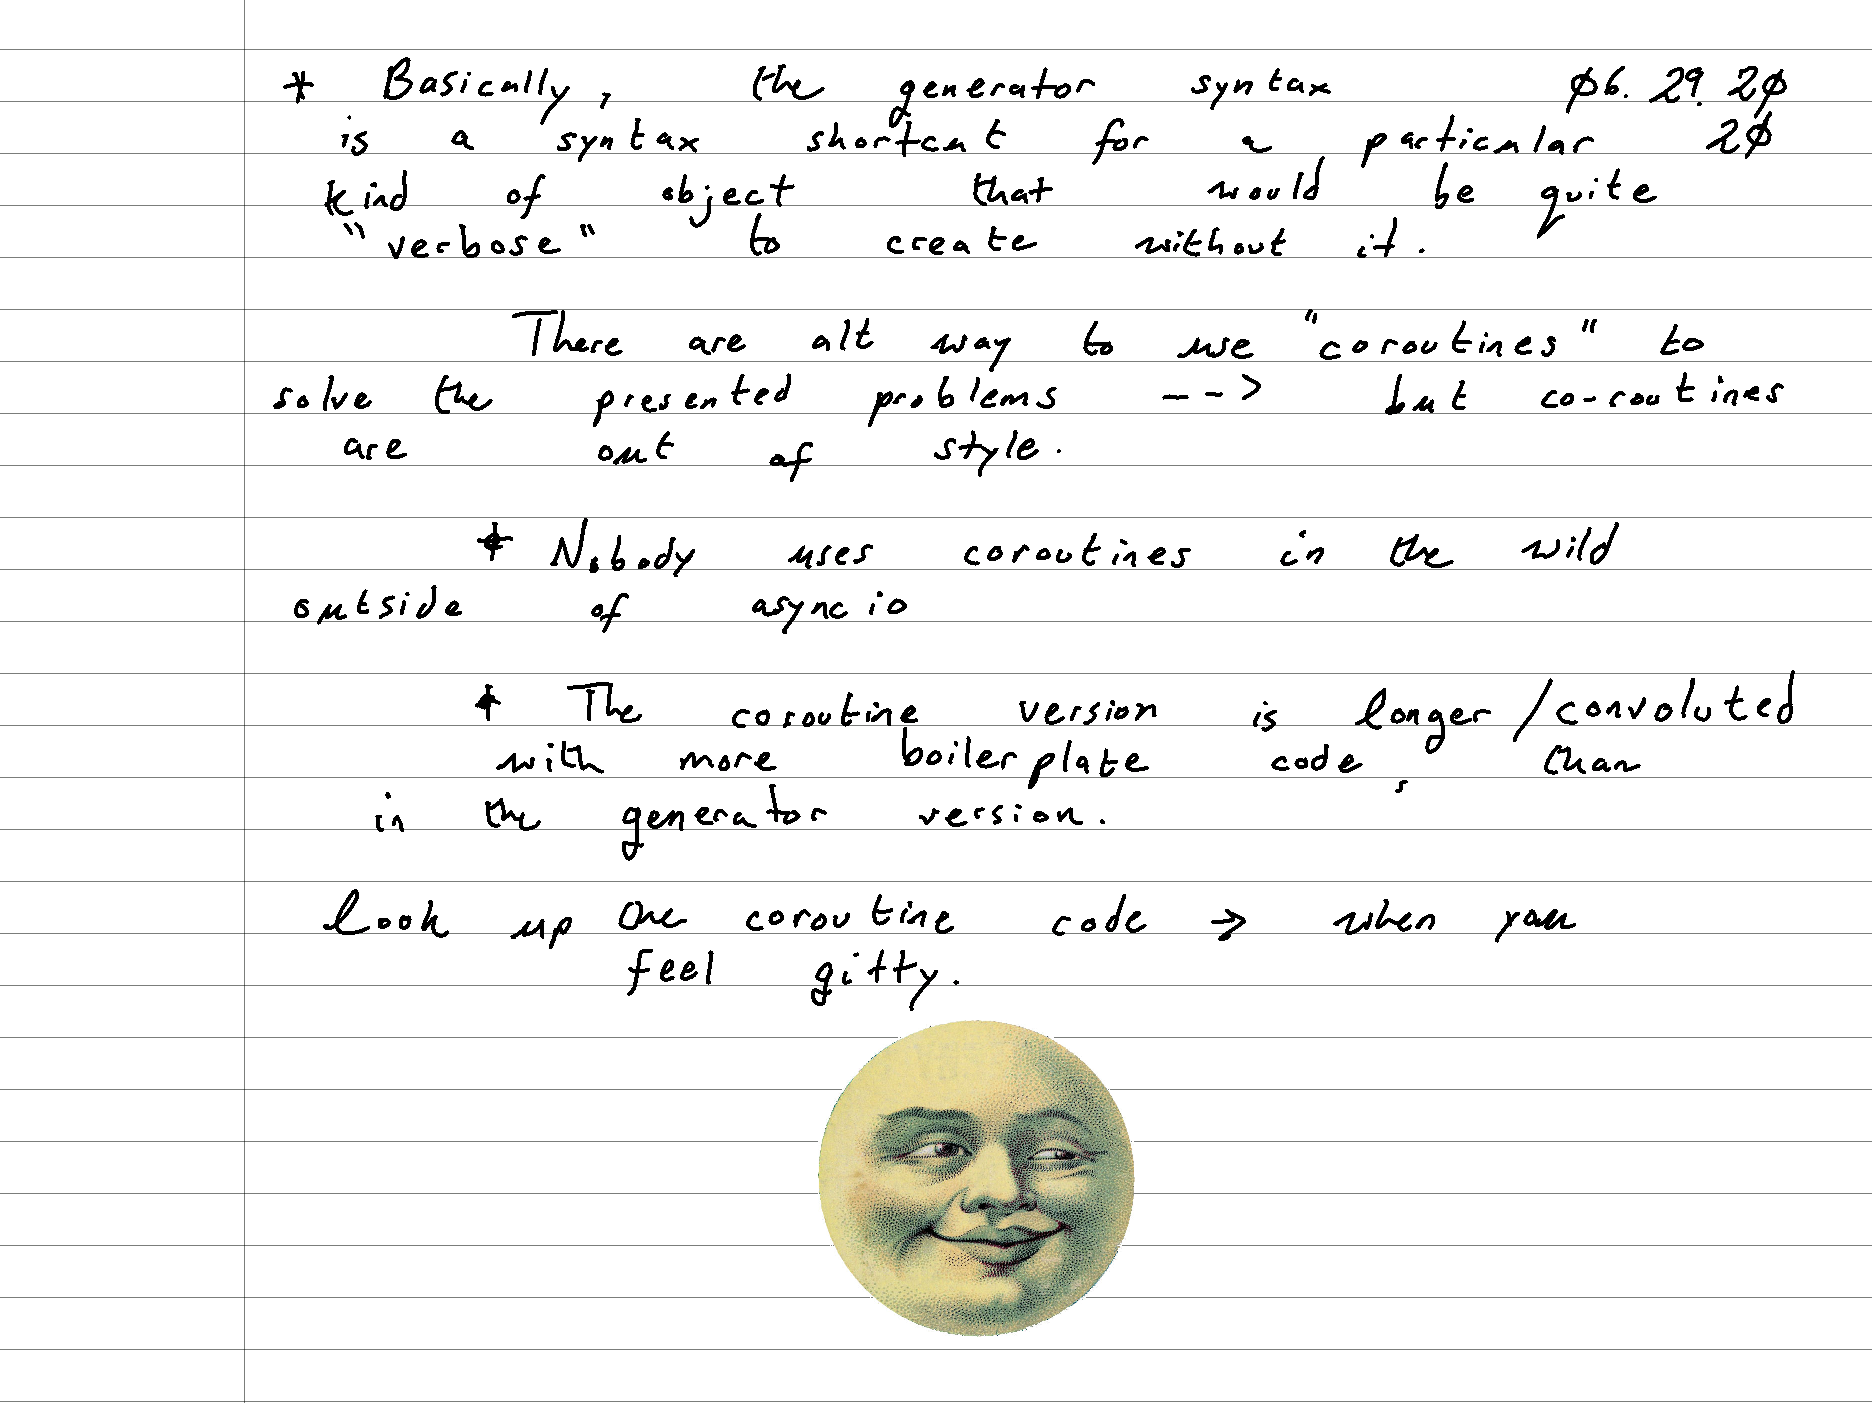 * Basically, the generator syntax 06. 29. 20
is a syntax shortcut for a particular 20
kind of object that would be quite
"verbose" to create without it.
There are alt way to use "coroutines" to
solve the presented problems --> but co-routines
are out of style.
* Nobody uses coroutines in the wild
outside of asyncio
* The coroutine version is longer/convoluted
with more boilerplate code, than
in the generator version.
look up the coroutine code → when you
feel gitty.